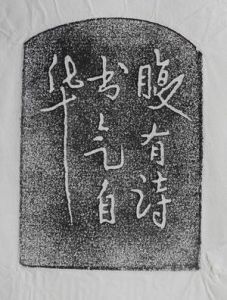 腹有诗
书气自
华